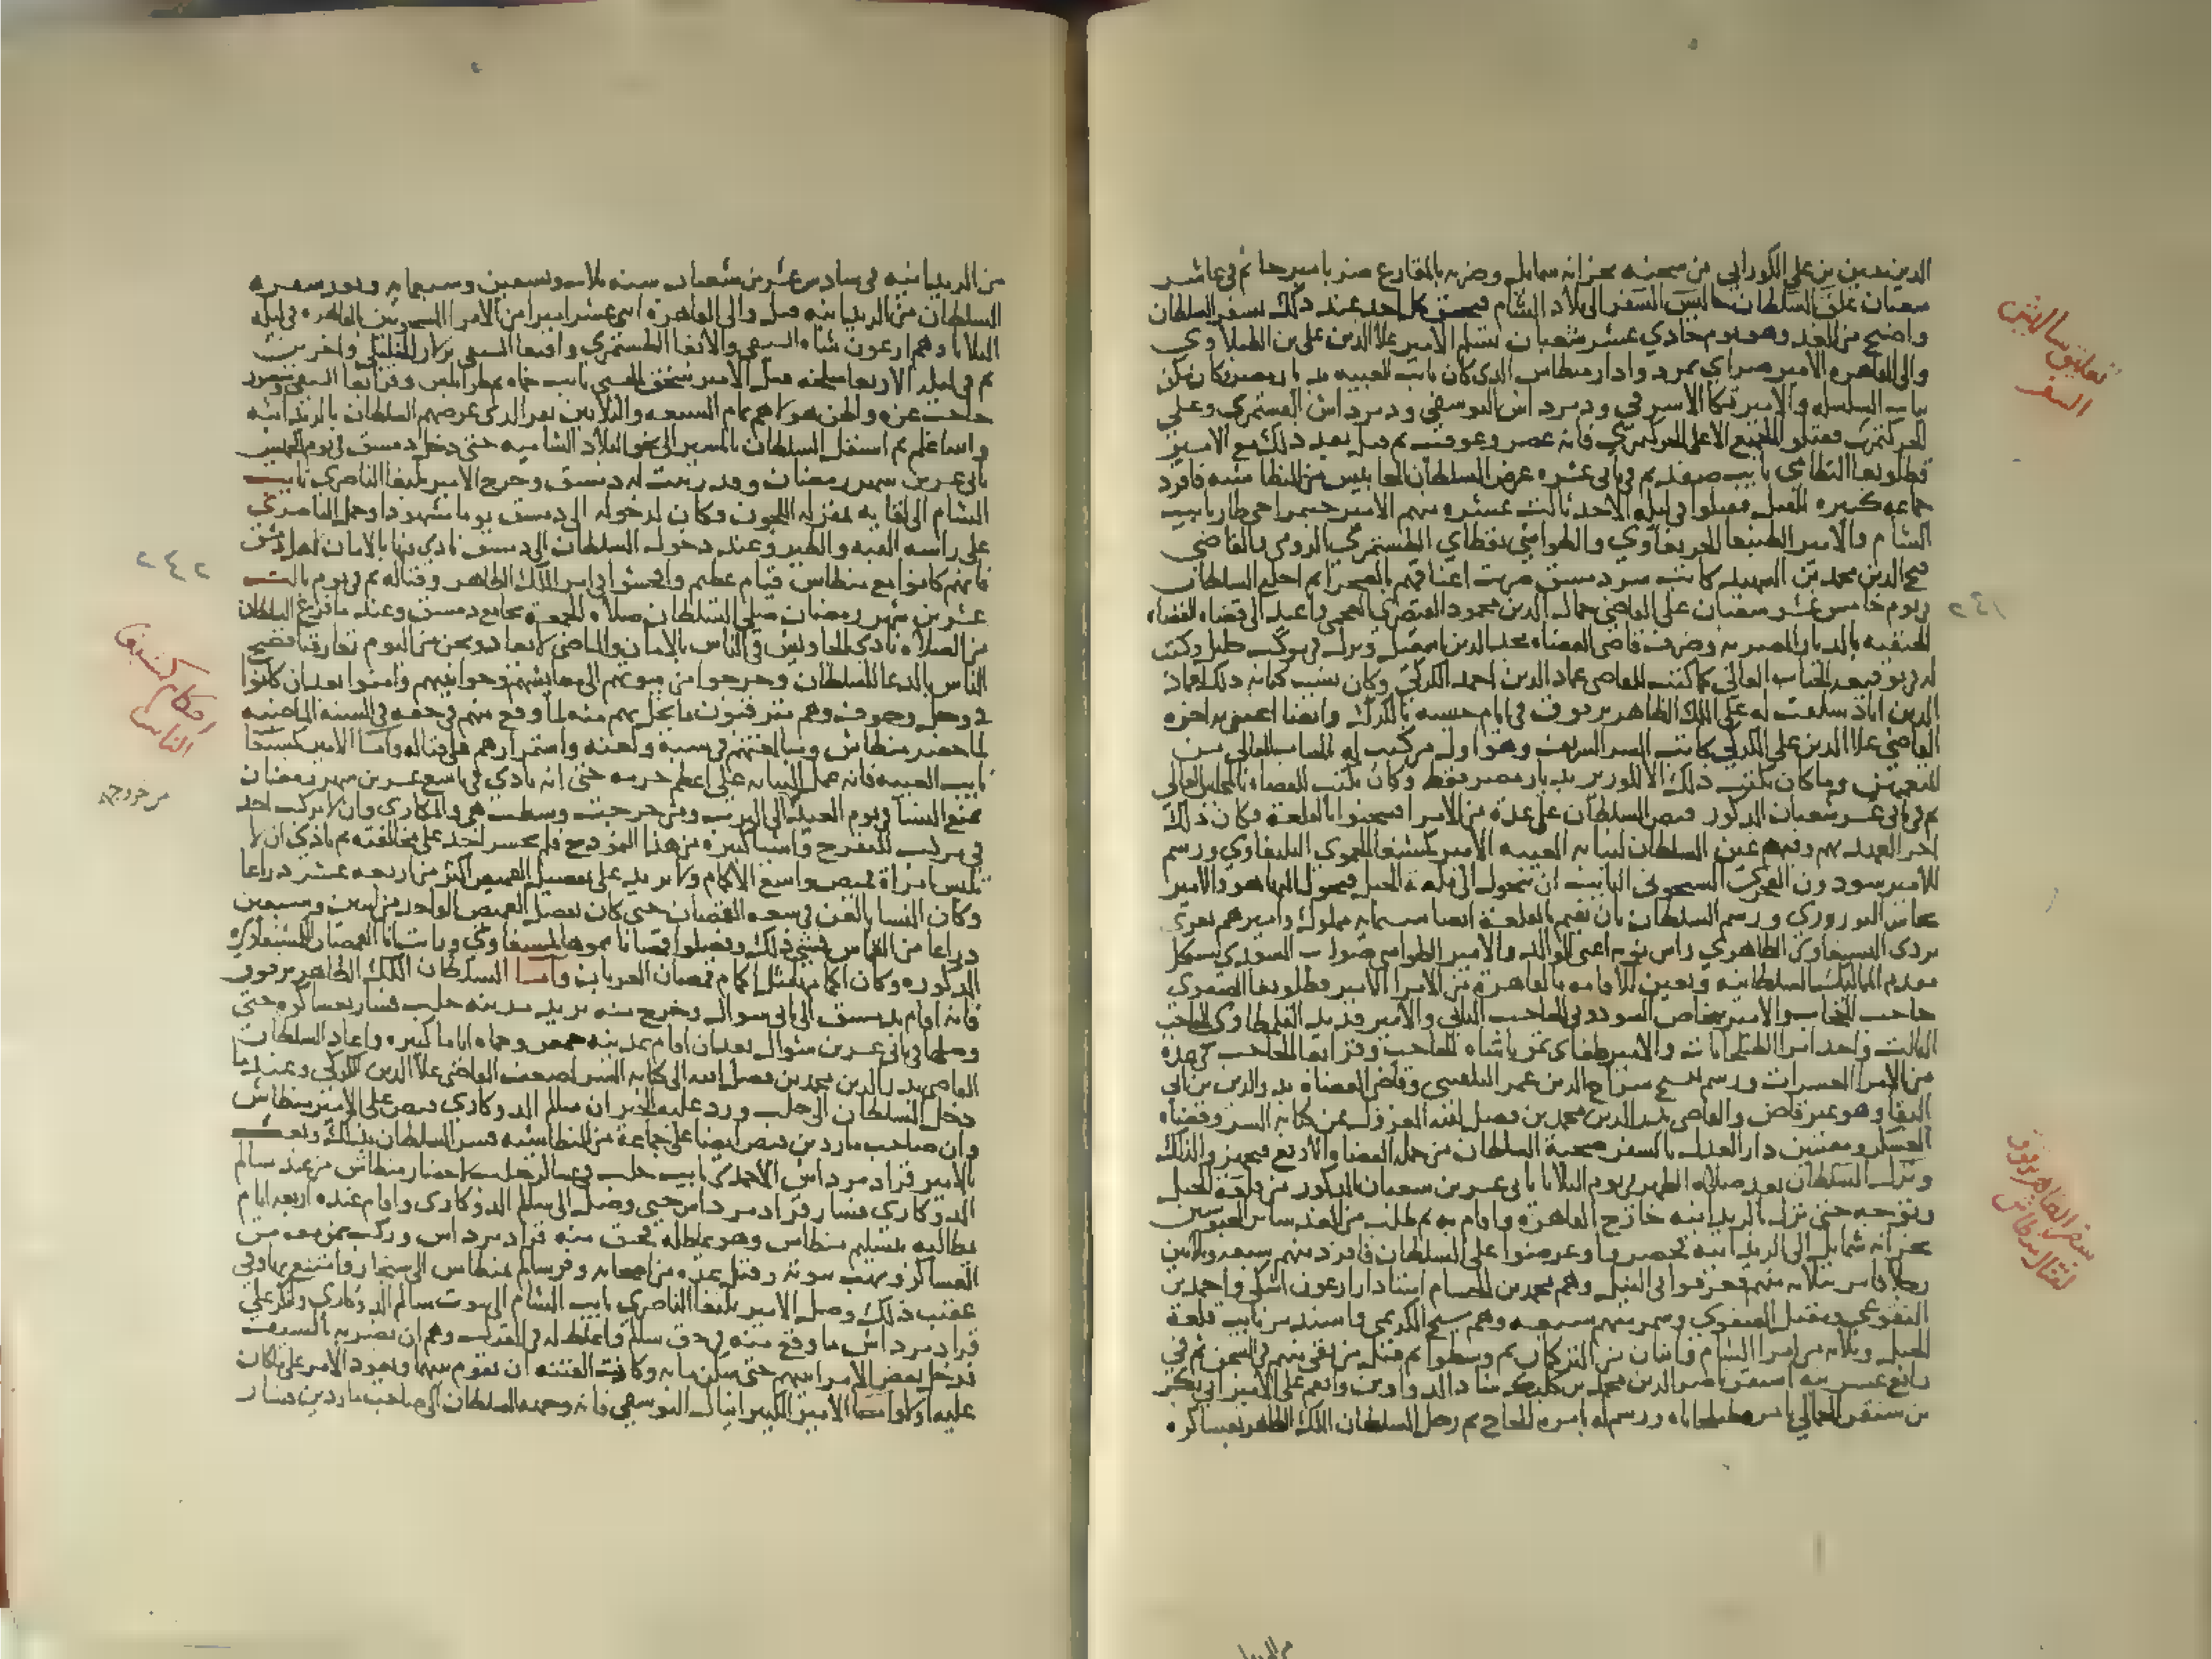 الدين بن علي الكوراني من سجنه بخزانه شمايل وضربه بالمقارع
شعبان علق السلطان جاليش السفر الى بلاد الشام فتحقق كل احد عند ذلك سفر السلطان
واصبح من الغد وهو يوم حادي عشر شعبان تسلم الامير علا الدين علي بن الطبلاوي
والي القاهره الامير صراي تمر دوادار منطاش الذي كان نايب الغيبه بديار مصر وكان سكن
بباب السلسله والامير تكا الاشرفي ودمرداش اليوسفي ودمرداش القشتمري وعلي
الجركتمري فقتلوا الجميع الا علي الجركتمري فانه عصر وعوقب ثم قتل بعد ذلك مع الامير
قطلوبغا النظامي نايب صفد ثم في ثاني عشره عرض السلطان المحابيس من المنطاشيه فافرد
جماعه كثيره للقتل فقتلوا في ليله الاحد ثالث عشره منهم الامير جنتمر اخي طاز نايب
الشام والامير الطنبغا الجربغاوي والطواشي تقطاي الطشتمري الرومي والقاضي
فتح الدين محمد بن الشهيد كاتب سر دمشق ضربت اعناقهم بالصحرا ثم اخلع السلطان
في يوم خامس عشر شعبان على القاضي جمال الدين محمود القيصري العجمي واعيد الى قضاه القضاه
الحنفيه بالديار المصريه وصرف قاضي القضاه مجد الدين اسمعيل ونزل في موكب جليل وكتب
له في توقيعه الجناب العالي كما كتب للقاضي عماد الدين احمد الكركي وكان سبب كتابه ذلك لعماد
الدين اياد سلفت له على الملك الظاهر برقوق في ايام حبسه بالكرك وايضا اعتنى به اخوه
القاضي علا الدين علي الكركي كاتب السر الشريف وهو اول من كتب له الجناب العالي من
المتعممين وما كان يكتب ذلك الا للوزير بديار مصر فقط وكان يكتب للقضاه بالمجلس العالي
ثم في ثاني عشر شعبان المذكور قبض السلطان على عده من الامرا فسجنوا بالقلعة فكان ذلك
اخر العهد بهم وفيه عين السلطان لنيابه الغيبه الامير كمشبغا الحموي اليلبغاوي ورسم
للامير سودون الفخري الشيخوني النايب ان يتحول الى قلعة الجبل فتحول اليها هو والامير
بجاس النوروزي ورسم السلطان بان يقيم بالقلعة ايضا ستمايه مملوك واميرهم تغري
بردي اليشبغاوي الظاهري راس نوبه اعني الوالد والامير الطواشي صواب السعدي شنكل
مقدم المماليك السلطانيه وتعين للاقامه بالقاهرة من الامرا الامير قطلوبغا الصفوي
حاجب الحجاب والامير بتخاص السودوني الحاجب الثاني والامير قديد القلمطاوي الحاجب
الثالث واحد امرا الطبلخاناه والامير طغاي تمر باشاه الحاجب وقرابغا الحاجب في عدة
من الامرا العشرات ورسم للشيخ سراج الدين عمر البلقيني وقاضي القضاه بدر الدين بن ابي
البقا وهو غير قاض والقاضي بدر الدين محمد بن فضل الله المعزول عن كتابه السر وقضاه
العسكر ومفتين دار العدل بالسفر صحبة السلطان من جمله القضا والاربع فتجهزوا لذلك
ونزل السلطان بعد صلاه الظهر في يوم الثلاثا ثاني عشرين شعبان المذكور من قلعة الجبل
وتوجه حتى نزل بالريدانيه خارج القاهرة واقام به ثم طلب من الغد ساير المحبوسين
بخزانه شمايل الى الريدانيه بحضروا وعرضوا على السلطان فافرد منهم سبعه وثلاثين
رجلا فامر بثلاثه منهم فغرقوا في النيل وهم محمد بن الحسام استادار ارغون اسكي واحمد بن
النقوعي ومقبل الصفوي وسمر منهم سبعه وهم شيخ الكريمي واسندمر نايب قلعة
الجبل وثلاثه من امرا الشام واثنان من التركمان ثم وسطوا ثم قتل من بقي منهم في السجن ثم في
رابع عشرينه استقر ناصر الدين محمد بن كلبك شاد الدواوين وانعم على الامير ابي بكر
بن سنقر الجمالي بامره طبلخاناه ورسم له بامره الحاج ثم رحل السلطان الملك الظاهر بعساكره
من الريدا
تعليق جاليش
السفر
٢٤١
سفر الظاهر برقوق
لقتال منطاش
من الريدانيه في سادس عشرين شعبان سنه ثلاث وتسعين وسبعمايه وبعد سفره
السلطان من الريدانيه قتل والي القاهرة اثني عشر اميرا من الامرا المسجونين بالقاهره في ليله
الثلاثا وهم ارغون شاه السيفي والابغا الطشتمري واقبغا السيفي بزلار الخليلي واخرين
ثم في ليله الاربعا سلخه قتل الامير صنجق الحسني نايب حماه وطرابلس وقرابغا السيفي
حاجب غزه واظن هولا هم تمام السبعه والثلاثين نفر الذي عرضهم السلطان بالريدانيه
والله اعلم ثم استقل السلطان بالمسير الى نحو البلاد الشاميه حتى دخل دمشق في يوم الخميس
ثاني عشرين شهر رمضان وقد زينت له دمشق وخرج الامير يلبغا الناصري نايب
الشام الى لقايه بمنزله اللجون وكان لدخوله الى دمشق يوما مشهودا وحمل الناصري
على راسه القبه والطير وعند دخول السلطان الى دمشق نادى بها بالامان لاهل دمشق
فانهم كانوا مع منطاش قيام عظيم وافحشوا في امر الملك الظاهر وقتاله ثم في يوم ثالث
عشرين شهر رمضان صلى السلطان صلاه الجمعة بجامع دمشق وعند ما فرغ السلطان
من الصلاه نادى الجاويش في الناس بالامان والماضي لا يعاد ونحن من اليوم تعارفنا فضج
الناس بالدعا للسلطان وخرجوا من بيوتهم الى معايشهم وحوانيتهم وامنوا بعد ان كانوا
في وجل وخوف وهم يترقبون ما يحل بهم منه لما وقع منهم في حقه في السنه الماضيه
لما حضر منطاش ومبالغتهم في سبه ولعنه واستمرارهم على قتاله واما الامير كمشبغا
نايب الغيبه فانه عمل النيابه على اعظم حرمه حتى انه نادى في تاسع عشرين شهر رمضان
بمنع النسا في يوم العيد الى الترب ومن خرجت وسطت هي والمكاري وان لا يركب احد
في مركب للتفرج واشيا كثيره من هذا النموذج فلم يجسر احد على مخالفته ثم نادى ان لا
تلبس امراة قميص واسع الاكمام ولا يزيد على تفصيل القميص اكثر من اربعه عشر دراعا
وكان النسا بالغن في سعه القمصان حتى كان تفصل القميص الواحد من اثنين وسبعين
دراعا من القماش فمشي ذلك وفصلوا قمصانا سموها
المذكوره وكان اكمامها مثل اكمام قمصان العربان واما السلطان الملك الظاهر برقوق
فانه اقام بدمشق الى ثاني شوال وخرج منه يريد مدينه حلب فسار بعساكره حتى
وصلها في ثاني عشرين شوال بعد ان اقام بمدينه حمص وحماه اياما كثيره واعاد السلطان
القاضي بدر الدين محمد بن فضل الله الى كتابه السر لضعف القاضي علا الدين الكركي وعندما
دخل السلطان الى حلب ورد عليه الخبر ان سالم الدوكاري قبض على الامير منطاش
وان صاحب ماردين قبض ايضا على جماعة من المنطاشيه فسر السلطان بذلك وبعث
بالامير قرادمرداش الاحمدي نايب حلب في عسكر حلب لاحضار منطاش من عند سالم
الدوكاري فسار قرادمرداش حتى وصل الى سالم الدوكاري واقام عنده اربعه ايام
يطالبه بتسليم منطاش وهو يماطله فحنق منه قرادمرداش وركب بمن معه من
العساكر ونهب بيوته وقتل عده من اصحابه وفر سالم بمنطاش الى سنجار وامتنع بها وفي
عقيب ذلك وصل الامير يلبغا الناصري نايب الشام الى بيوت سالم الدوكاري وانكر على
قرادمرداش ما وقع منه في حق سالم واغلظ له في القول وهم ان يضربه بالسيف
فدخل بعض الامرا بينهم حتى سكن ما به وكادت الفتنه ان تقوم بينهما ويعود الامر على ما كان
عليه اولا واما الامير الكبير اينال اليوسفي فانه وجهه السلطان الى صاحب ماردين فسار
٢٤٢
احكام كمشبغا
الناس